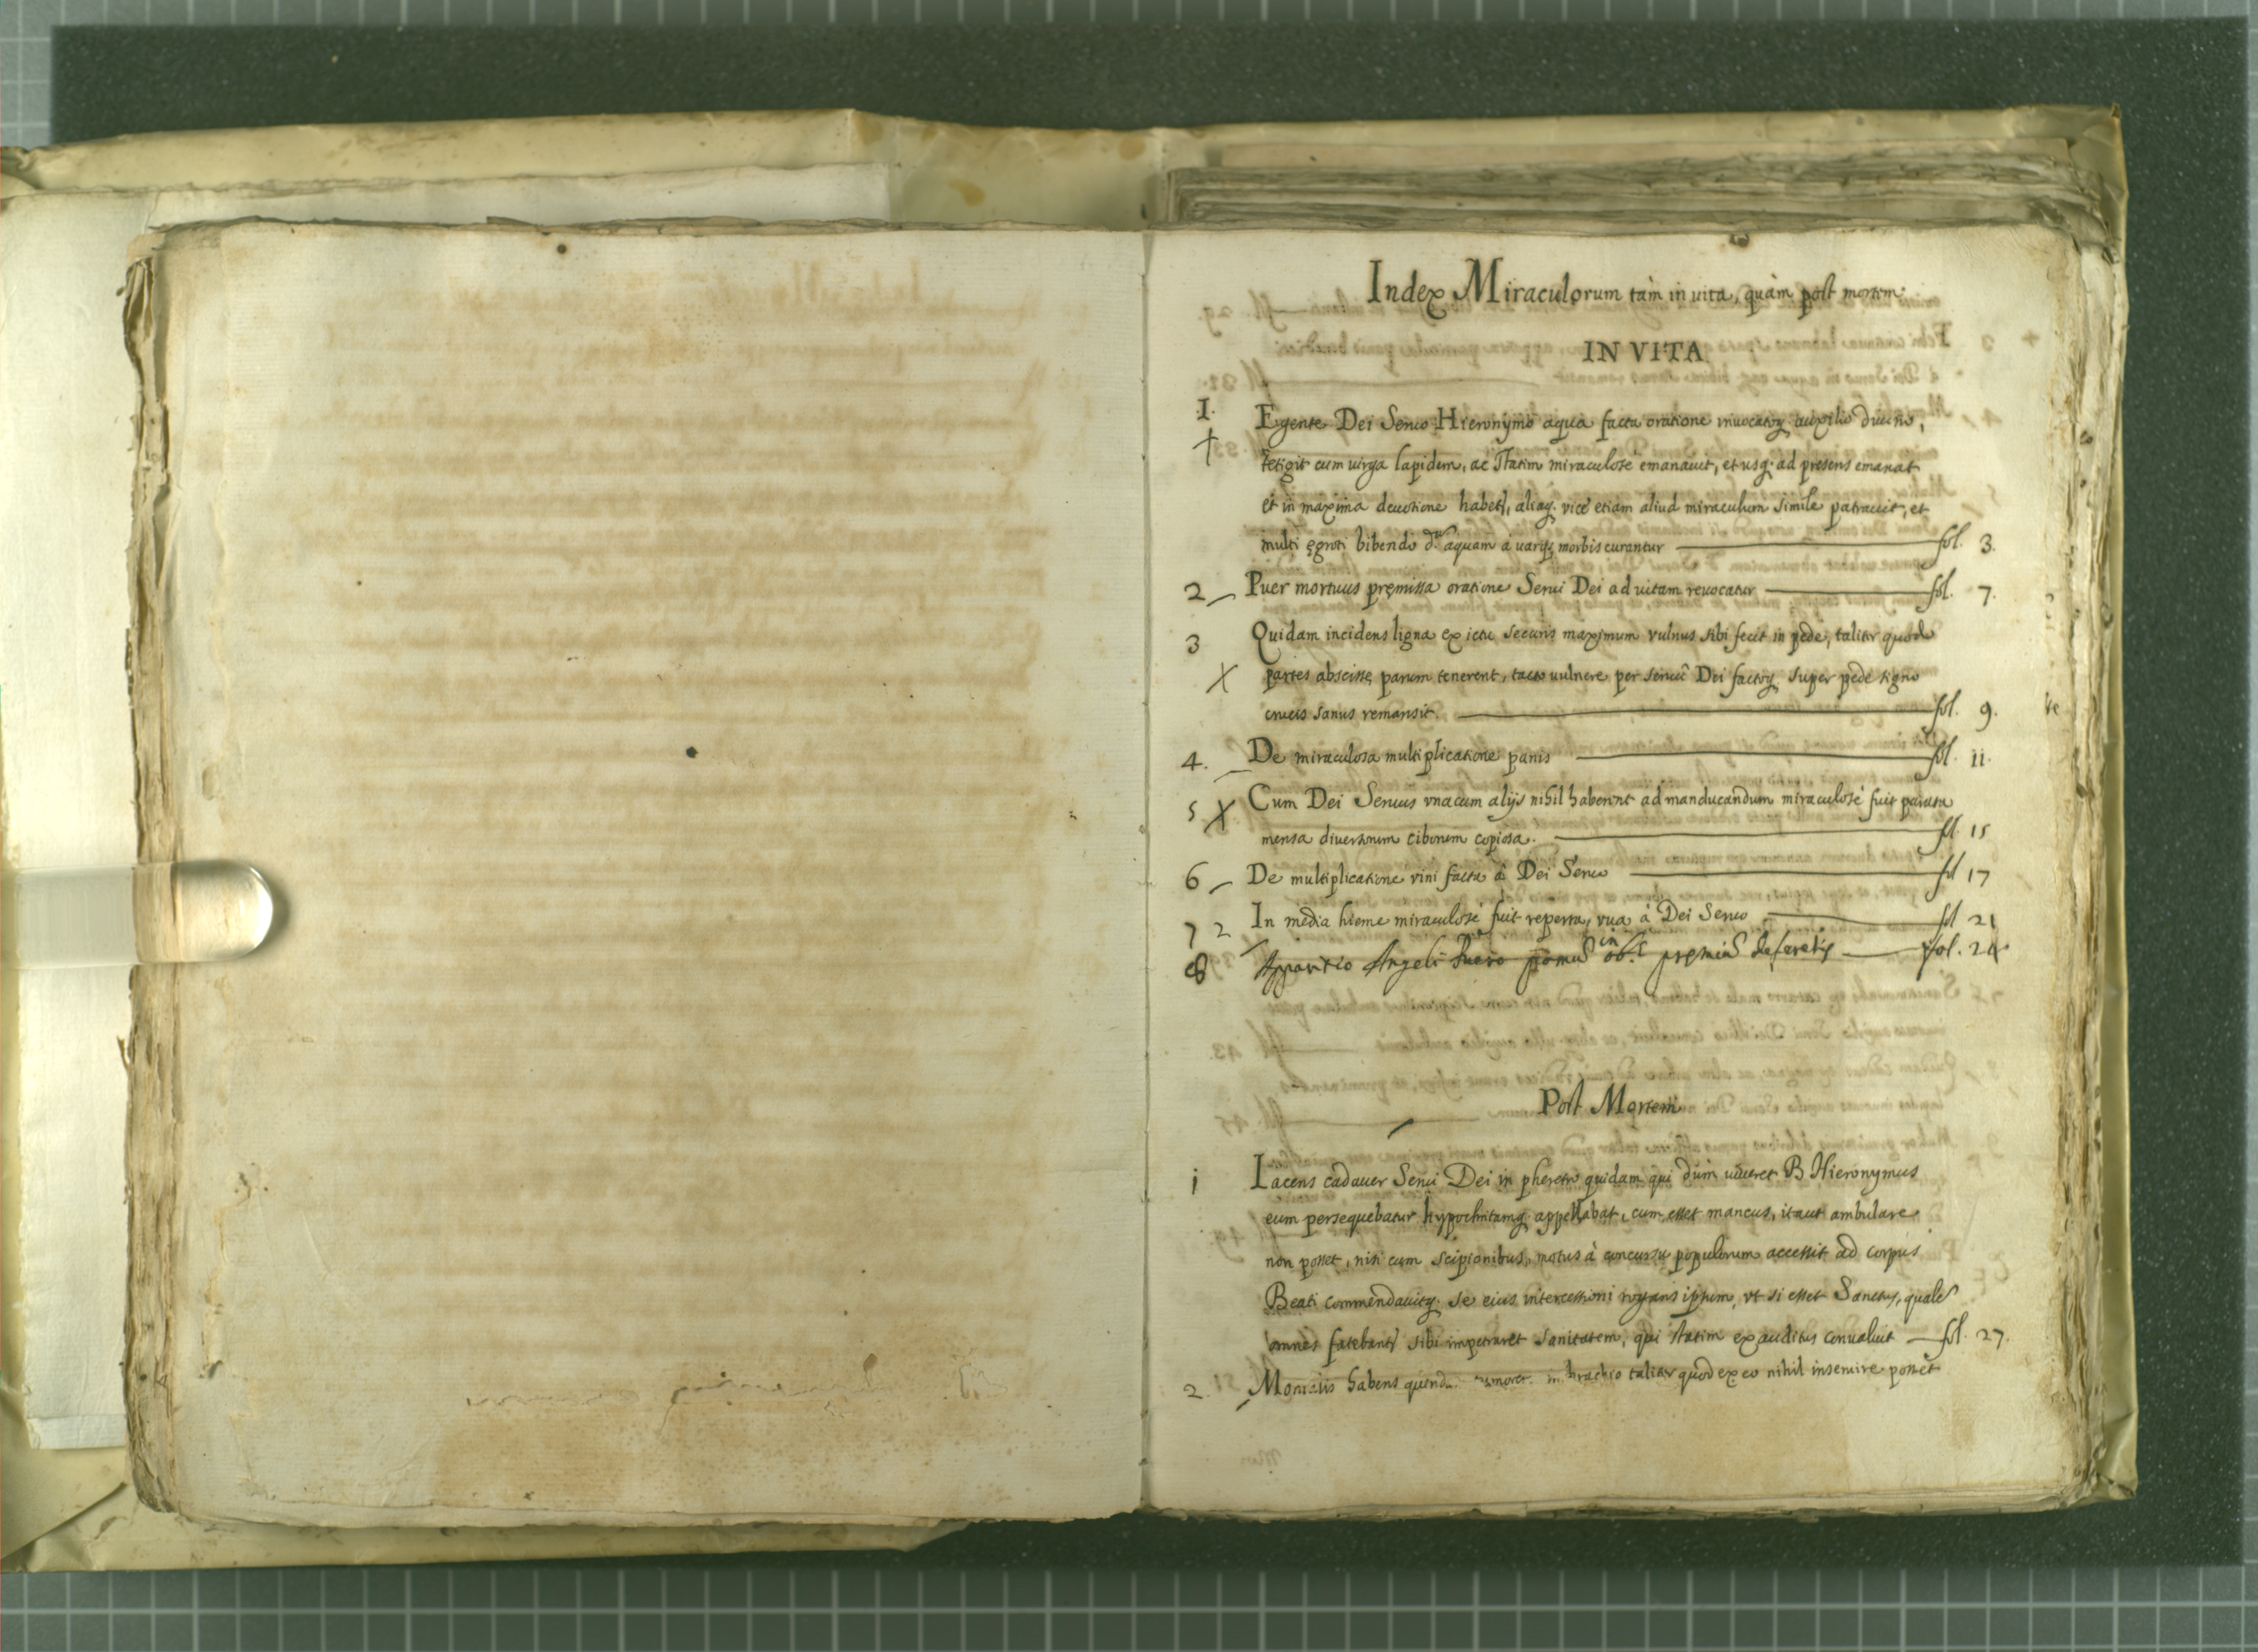 Index Miraculorum tàm in uita, quàm post mortem.
IN VITA
I. Egente Dei Seruo Hieronymo aqua facta oratione inuocatoq; auxilio diuino,
tetigit cum uirga lapidem, ac statim miraculosè emanauit, et usq; ad presens emanat
et in maxima deuotione habet, aliaq; vice etiam aliud miraculum simile patrauit, et
multi ęgroti bibendo d.am aquam à uarijs morbis curantur — fol. 3.
2 Puer mortuus pręmissa oratione Serui Dei ad uitam reuocatur — fol. 7.
3 Quidam incidens ligna ex ictu securis maximum vulnus sibi fecit in pede, taliter quod
partes abscissę parum tenerent, tacto uulnere per seruũ Dei factoq; super pede signo
crucis sanus remansit. — fol. 9.
4. De miraculosa multiplicatione panis — fol. 11.
5 X Cum Dei Seruus vna cum alijs nihil haberent ad manducandum miraculosè fuit parata
mensa diuersorum ciborum copiosa. — fol. 15
6 De multiplicatione vini facta à Dei Seruo — fol 17
7 2 In media hieme miraculosè fuit reperta vua à Dei Seruo — fol 21
8 Apparitio Angeli — fol. 24
Post Mortem
1 Iacens cadauer Serui Dei in pheretro quidam qui dum uiueret B Hieronymus
eum persequebatur hypochritamq; appellabat, cum esset mancus, ita ut ambulare
non posset, nisi cum scipionibus, motus à concursu populorum accessit ad corpus
Beati commendauitq; se eius intercessioni rogans ipsum, vt si esset Sanctus, qualẽ
omnes fatebant sibi impetraret sanitatem, qui statim exauditus conualuit — fol. 27.
2. Monialis habens quendam in brachio taliter quod ex eo nihil inseruire posset